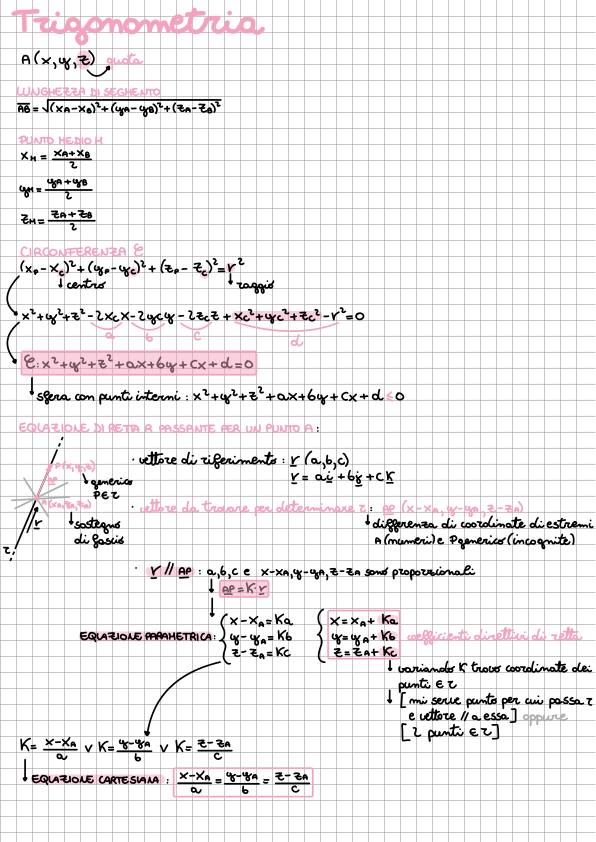 Trigonometria
A (x, y, z) quota
LUNGHEZZA DI SEGMENTO
AB = √(xA-xB)²+(yA-yB)²+(zA-zB)²
PUNTO MEDIO M
xM = xA+xB / 2
yM = yA+yB / 2
zM = zA+zB / 2
CIRCONFERENZA C
(xp-xc)²+(yp-yc)²+(zp-zc)²=r²
↓ centro ↓ raggio
x²+y²+z²-2xcx-2ycy-2zcz+xc²+yc²+zc²-r²=0
a b c d
C: x²+y²+z²+ax+by+cx+d=0
↓ sfera con punti interni: x²+y²+z²+ax+by+cx+d≤0
EQUAZIONE DI RETTA R PASSANTE PER UN PUNTO A:
· vettore di riferimento: r (a,b,c)
r = ai + bj + ck
P(x,y,z)
AP
↓ generico
P∈r
A(xA,yA,zA)
r
↓ sostegno
di fascio
r
· vettore da trovare per determinare r: AP (x-xA, y-yA, z-zA)
↓ differenza di coordinate di estremi
A(numeri) e Pgenerico (incognite)
· r // AP : a,b,c e x-xA, y-yA, z-zA sono proporzionali
AP = K·r
EQUAZIONE PARAMETRICA: { x-xA = Ka { x = xA + Ka
y-yA = Kb y = yA + Kb coefficienti direttivi di retta
z-zA = Kc z = zA + Kc
↓ variando K trovo coordinate dei
punti ∈ r
↓ [mi serve punto per cui passa r
e vettore // a essa] oppure
[2 punti ∈ r]
K = x-xA / a v K = y-yA / b v K = z-zA / c
↓ EQUAZIONE CARTESIANA: x-xA / a = y-yA / b = z-zA / c